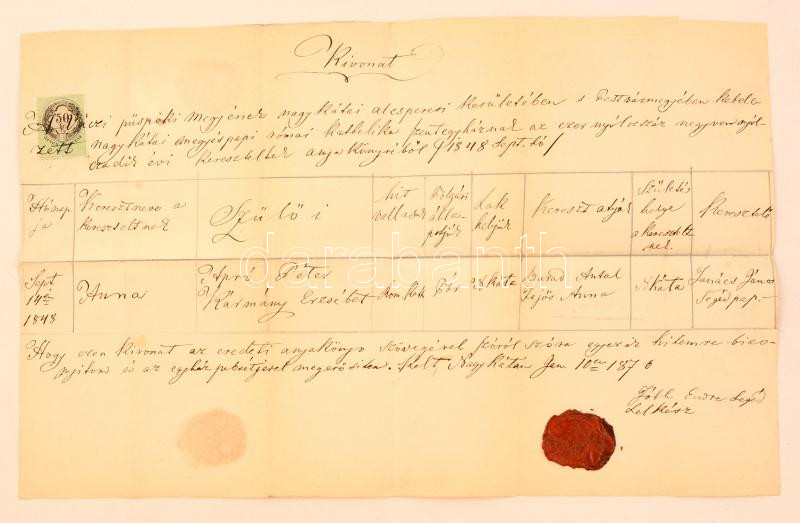 Kivonat
50
püspöki megyének nagykátai alesperesi kerületében s Pestvármegyében kebele-
zett nagykátai megyéspapi római katholika szentegyháznak az ezernyolcszáz negyvennyol-
czadik évi kereszteltek anyakönyvéből (1848 Sept. hó)
Hónap-
ja
Keresztneve a
kereszteltnek
Szülői
hit
vallásuk
Polgári
álla-
potjuk
Lak
helyük
Keresztatyák
Születés
helye
a keresztelt-
nek.
Keresztelő
Sept
14én
1848
Anna
Apró Péter
Kármány Erzsébet
Rom. Kath
N Káta
Antal
Anna
N Káta
János
Segédpap.
Hogy ezen kivonat az eredeti anyakönyv szövegével szóról szóra egyez hitemre bizo-
nyitom és az egyház pecsétjével megerősitem. Kelt Nagykátán Jan 10én 1876
Tóth Endre Segéd
Lelkész
darabanth